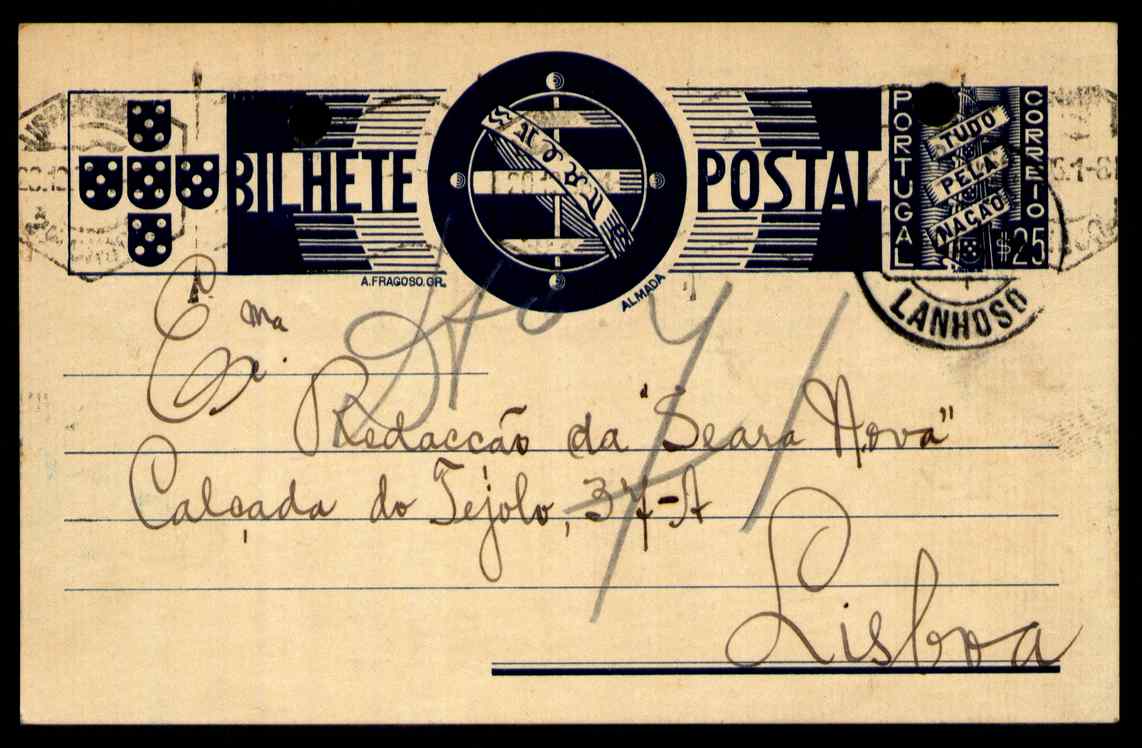 BILHETE POSTAL
PORTUGAL
CORREIO
TUDO
PELA
NAÇÃO
$25
A. FRAGOSO. GR.
ALMADA
LANHOSO
Exma.
Redacção da "Seara Nova"
Calçada do Tejolo, 37-A
Lisboa